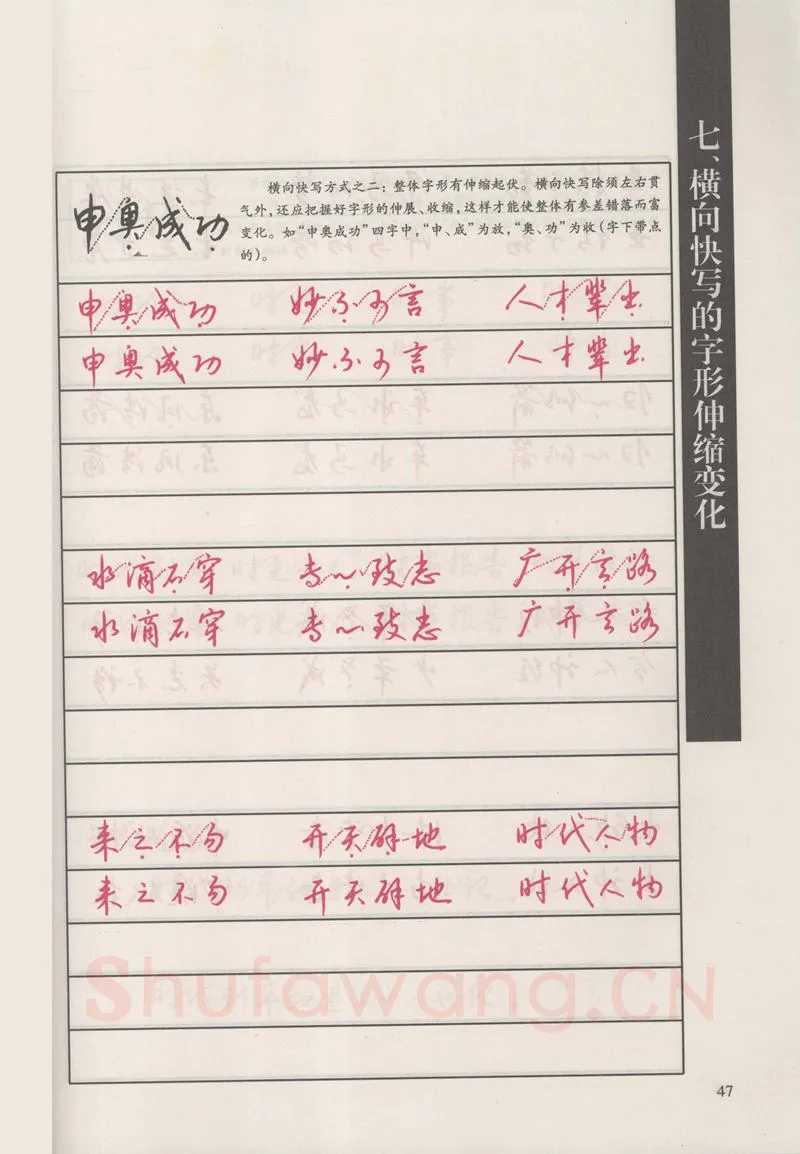 七、横向快写的字形伸缩变化
申奥成功
横向快写方式之二：整体字形有伸缩起伏。横向快写除须左右贯
气外，还应把握好字形的伸展、收缩，这样才能使整体有参差错落而富
变化。如“申奥成功”四字中，“申、成”为放，“奥、功”为收（字下带点
的）。
申奥成功 妙不可言 人才辈出
申奥成功 妙不可言 人才辈出
水滴石穿 专心致志 广开言路
水滴石穿 专心致志 广开言路
来之不易 开天辟地 时代人物
来之不易 开天辟地 时代人物
Shufawang.CN
47